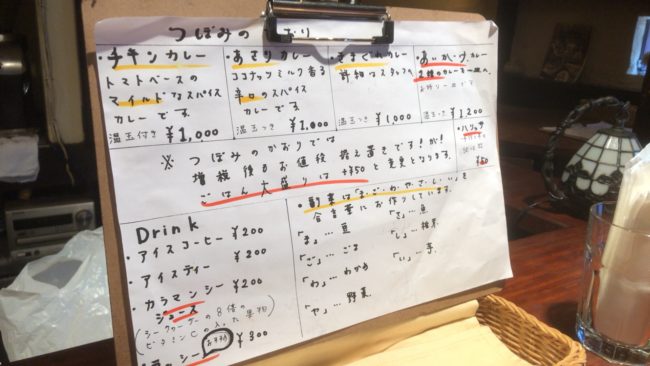 つぼみの
・チキンカレー
トマトベースの
マイルドなスパイス
カレーです
温玉付き ¥1,000
・あさりカレー
ココナッツミルク香る
辛口のスパイス
カレーです
温玉つき ¥1,000
カレー
詳細はスタッフへ
温玉つき ¥1,000
・あいがけカレー
2種のカレーを
¥1,200
・ハリッサ
¥50
※ つぼみのかおりでは
増税後もお値段据え置きです!が!
ごはん大盛りは+¥50と変更となります。
Drink
・アイスコーヒー ¥200
・アイスティー ¥200
・カラマンシー ¥200
ジュース
(シークワーサーの8倍の
ビタミンCの入った果物)
シー おすすめ ¥300
・副菜は「ま・ご・わ・や・さ・し・い」を
合言葉にお作りしています。
「ま」… 豆
「ご」… ごま
「わ」… わかめ
「や」… 野菜
「さ」… 魚
「し」… 椎茸
「い」… 芋